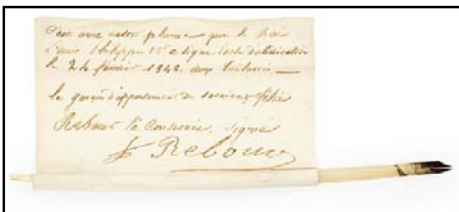 C'est avec cette plume que le Roi
Louis Philippe 1er a signé son abdication
le 24 février 1848. aux Tuileries —
le garçon d'appartement de service
Rebour l'a conservée. signé
Rebour